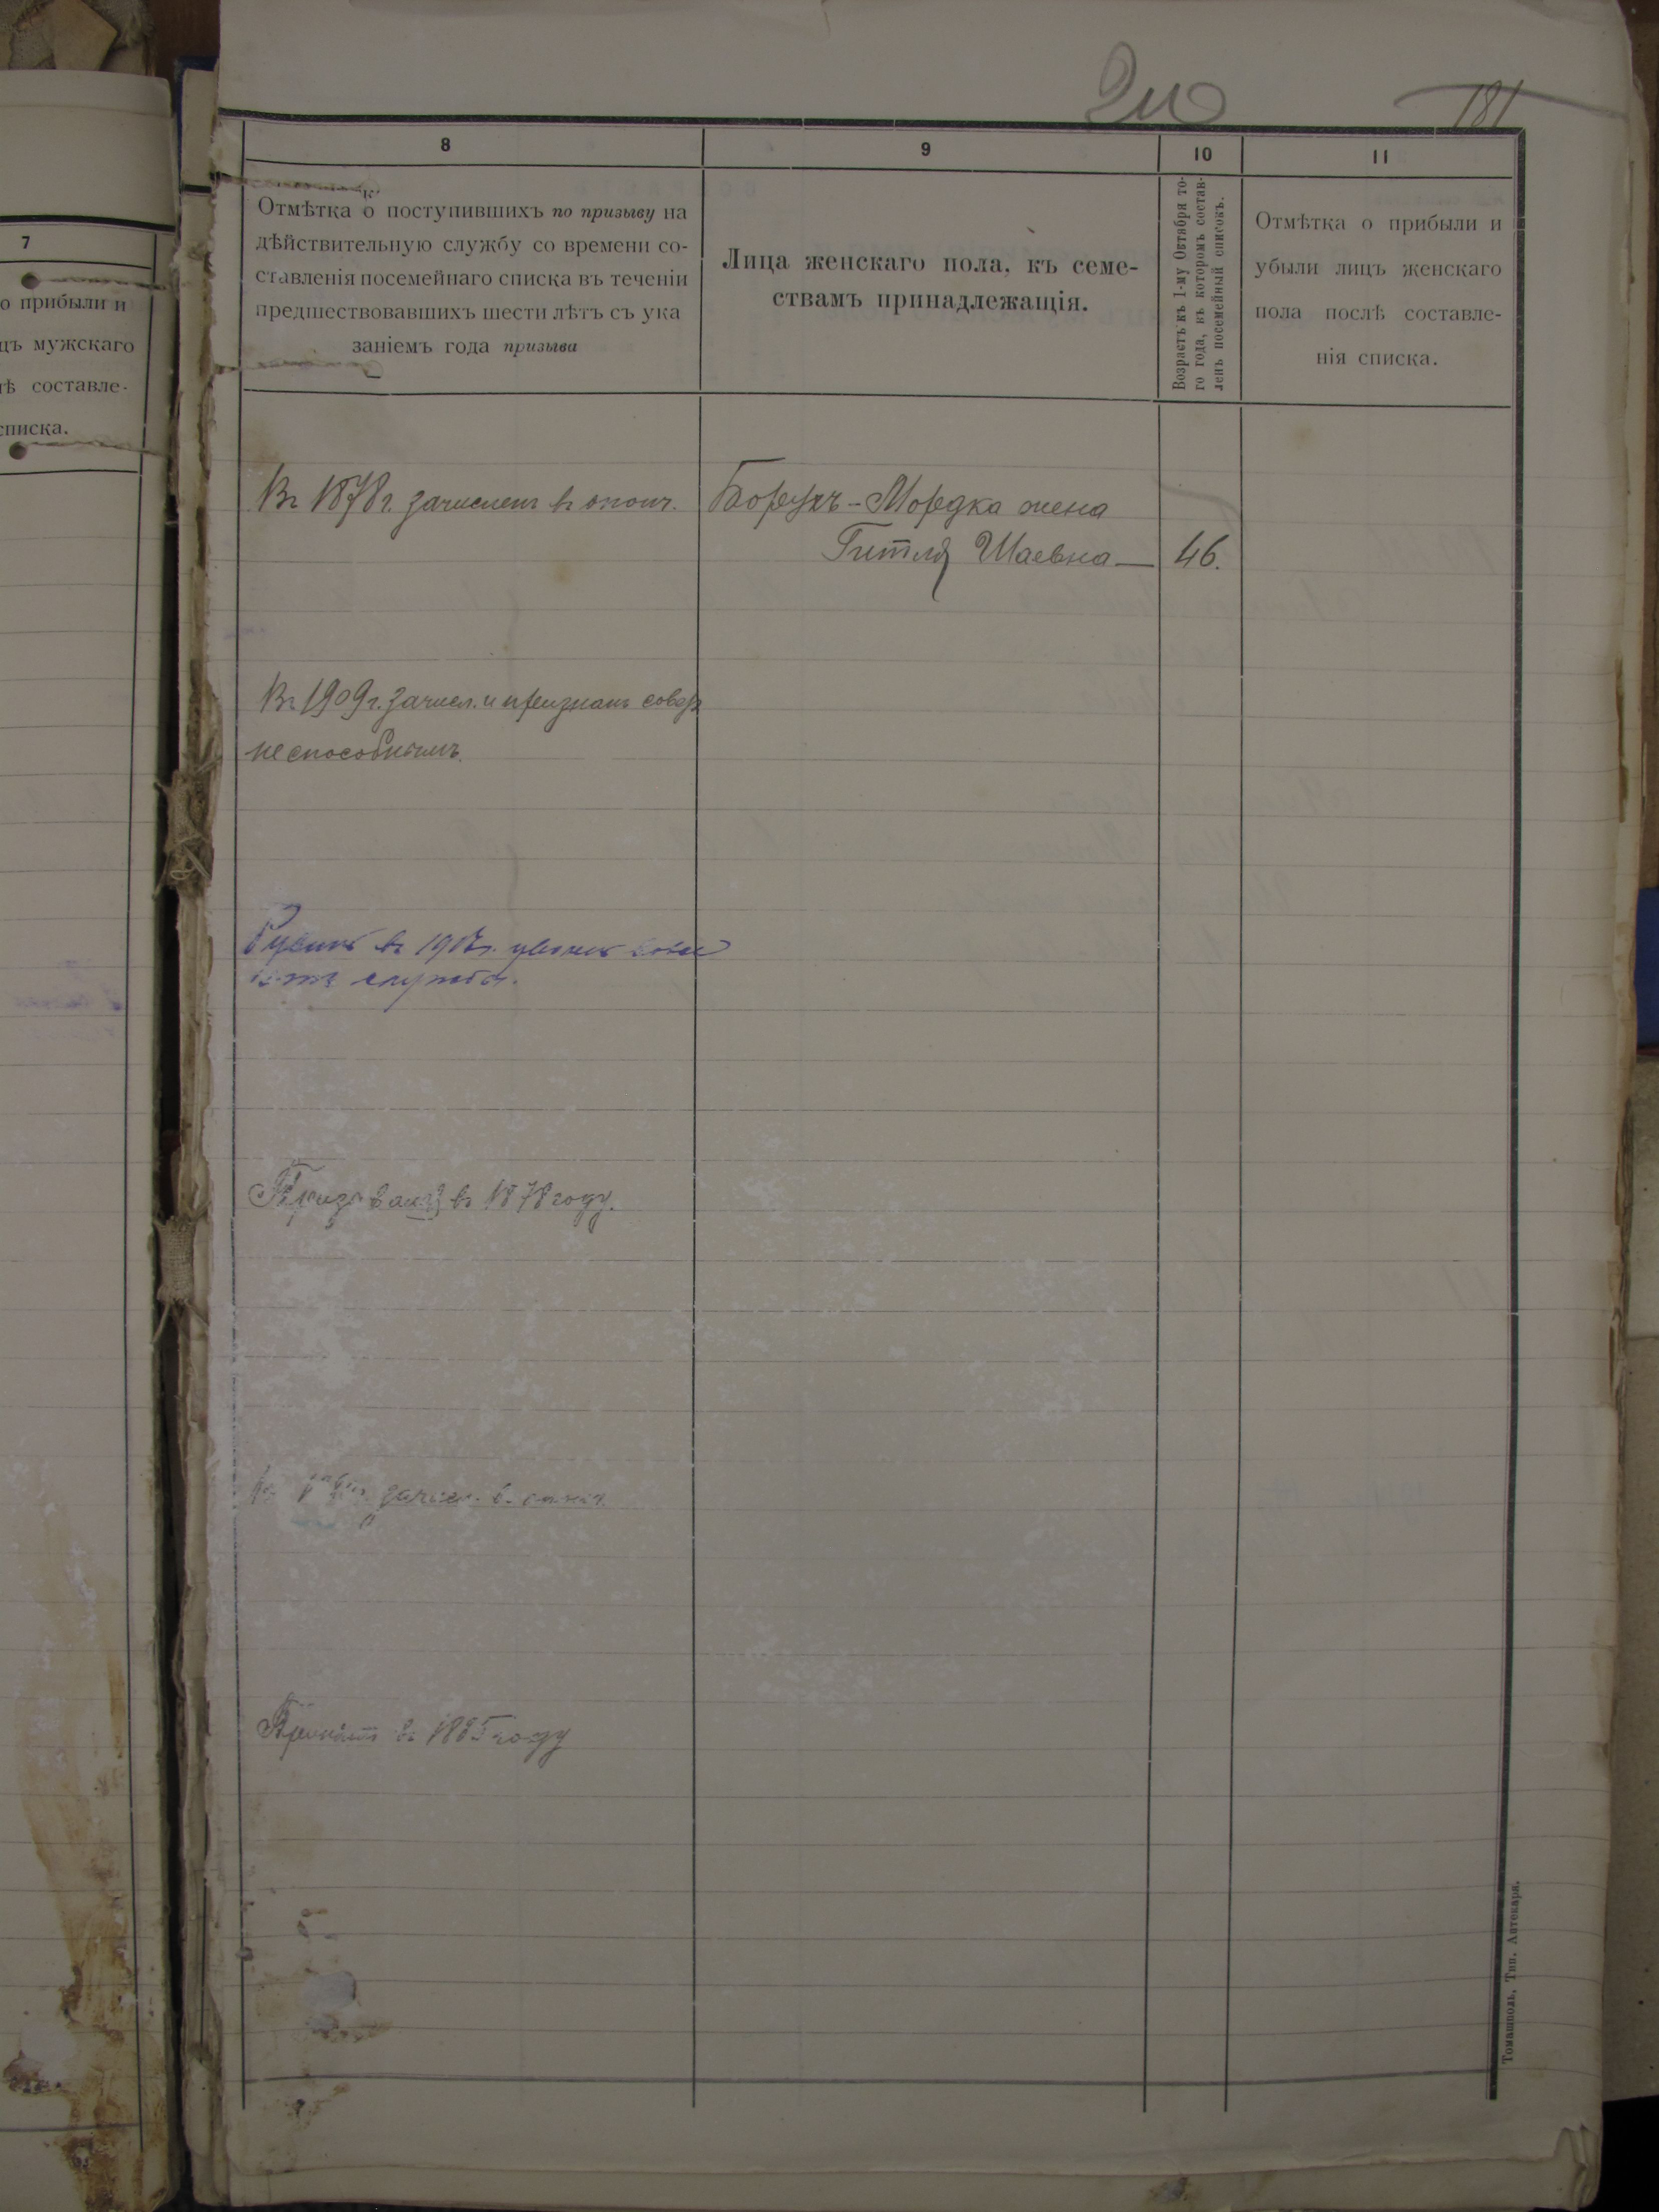 210
181
7
о прибыли и
цъ мужскаго
лѣ составле-
списка.
8
9
10
11
Отмѣтка о поступившихъ по призыву на
дѣйствительную службу со времени со-
ставленія посемейнаго списка въ теченіи
предшествовавшихъ шести лѣтъ съ ука
заніемъ года призыва
Лица женскаго пола, къ семе-
ствамъ принадлежащія.
Возрастъ къ 1-му Октября то-
го года, въ которомъ состав-
ленъ посемейный списокъ.
Отмѣтка о прибыли и
убыли лицъ женскаго
пола послѣ составле-
нія списка.
Въ 1878 г. зачисленъ въ ополч.
Борухъ-Мордка жена
Гитля Шаевна — 46.
Въ 1909 г. зачисл. и признанъ
неспособнымъ.
въ
службы.
въ 1878 году.
зачисл. в.
въ году
Томашполь, Тип. Аптекаря.